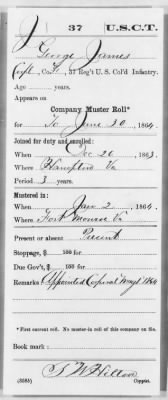 J | 37 | U.S.C.T.
George James
Corpl, Co. , 37 Reg't U. S. Col'd Infantry.
Age years.
Appears on
Company Muster Roll*
for To June 30, 1864.
Joined for duty and enrolled:
When Dec 26, 1863.
Where Hampton Va
Period 3 years.
Mustered in:
When Jany 2, 1864.
Where Fort Monroe Va
Present or absent Present
Stoppage, $ 100 for
Due Gov't, $ 100 for
Remarks: Appointed Corporal May 1 1864
* First current roll. No muster-in roll of this company on file.
Book mark:
(358i) Copyist.